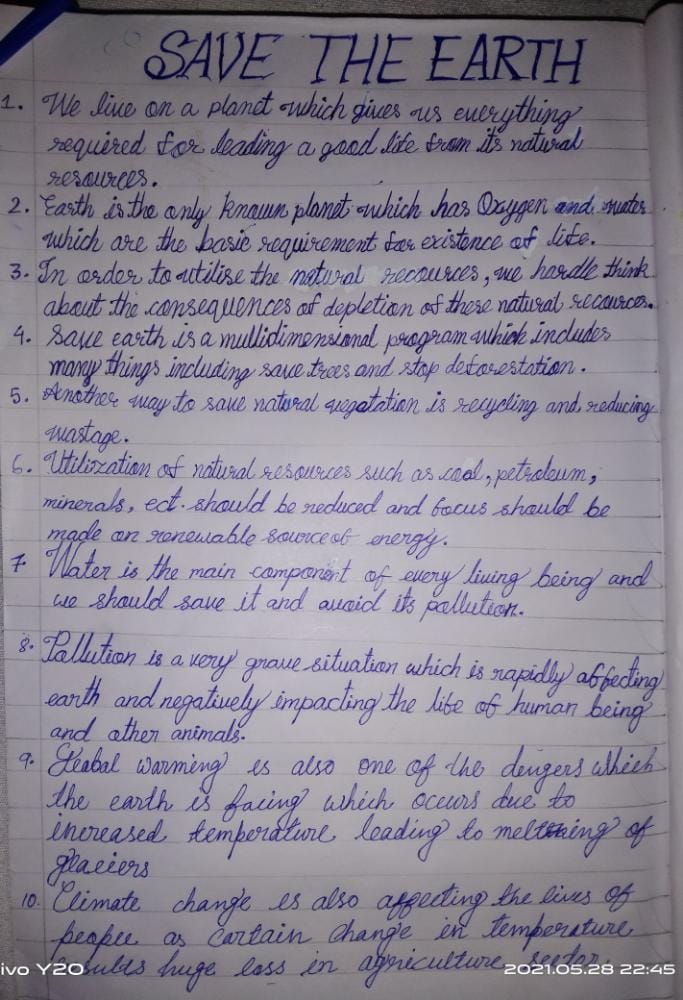 SAVE THE EARTH
1. We live on a planet which gives us everything
required for leading a good life from its natural
resources.
2. Earth is the only known planet which has Oxygen and water
which are the basic requirement for existence of life.
3. In order to utilise the natural recources, we hardle think
about the consequences of depletion of these natural recources.
4. Save earth is a multidimensional program which includes
many things including save trees and stop deforestation.
5. Another way to save natural vegatation is recycling and reducing
wastage.
6. Utilization of natural resources such as coal, petroleum,
minerals, ect. should be reduced and focus should be
made on renewable source of energy.
7. Water is the main component of every living being and
we should save it and avoid its pollution.
8. Pollution is a very grave situation which is rapidly affecting
earth and negatively impacting the life of human being
and other animals.
9. Gleabal warming is also one of the dengers which
the earth is facing which occurs due to
increased temperature leading to melting of
glaciers
10. Climate change is also affecting the lives of
people as certain change in temperature
results huge loss in agriculture sector.
ivo Y20
2021.05.28 22:45